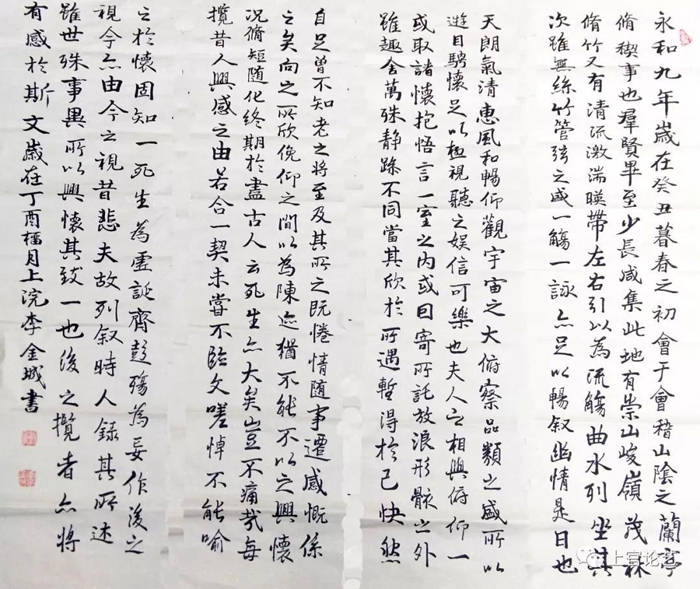 永和九年歲在癸丑暮春之初會于會稽山陰之蘭亭
脩稧事也羣賢畢至少長咸集此地有崇山峻嶺茂林
脩竹又有清流激湍暎帶左右引以為流觴曲水列坐其
次雖無絲竹管弦之盛一觴一詠亦足以暢叙幽情是日也
天朗氣清惠風和暢仰觀宇宙之大俯察品類之盛所以
遊目騁懷足以極視聽之娛信可樂也夫人之相與俯仰一
或取諸懷抱悟言一室之内或因寄所託放浪形骸之外
雖趣舍萬殊静躁不同當其欣於所遇暫得於己快然
自足曾不知老之將至及其所之既惓情隨事遷感慨係
之矣向之所欣俛仰之間以為陳迹猶不能不以之興懷
況脩短隨化終期於盡古人云死生亦大矣豈不痛哉每
攬昔人興感之由若合一契未嘗不臨文嗟悼不能喻
之於懷固知一死生為虛誕齊彭殤為妄作後之
視今亦由今之視昔悲夫故列叙時人錄其所述
雖世殊事異所以興懷其致一也後之攬者亦將
有感於斯文歲在丁酉榴月上浣李金城書